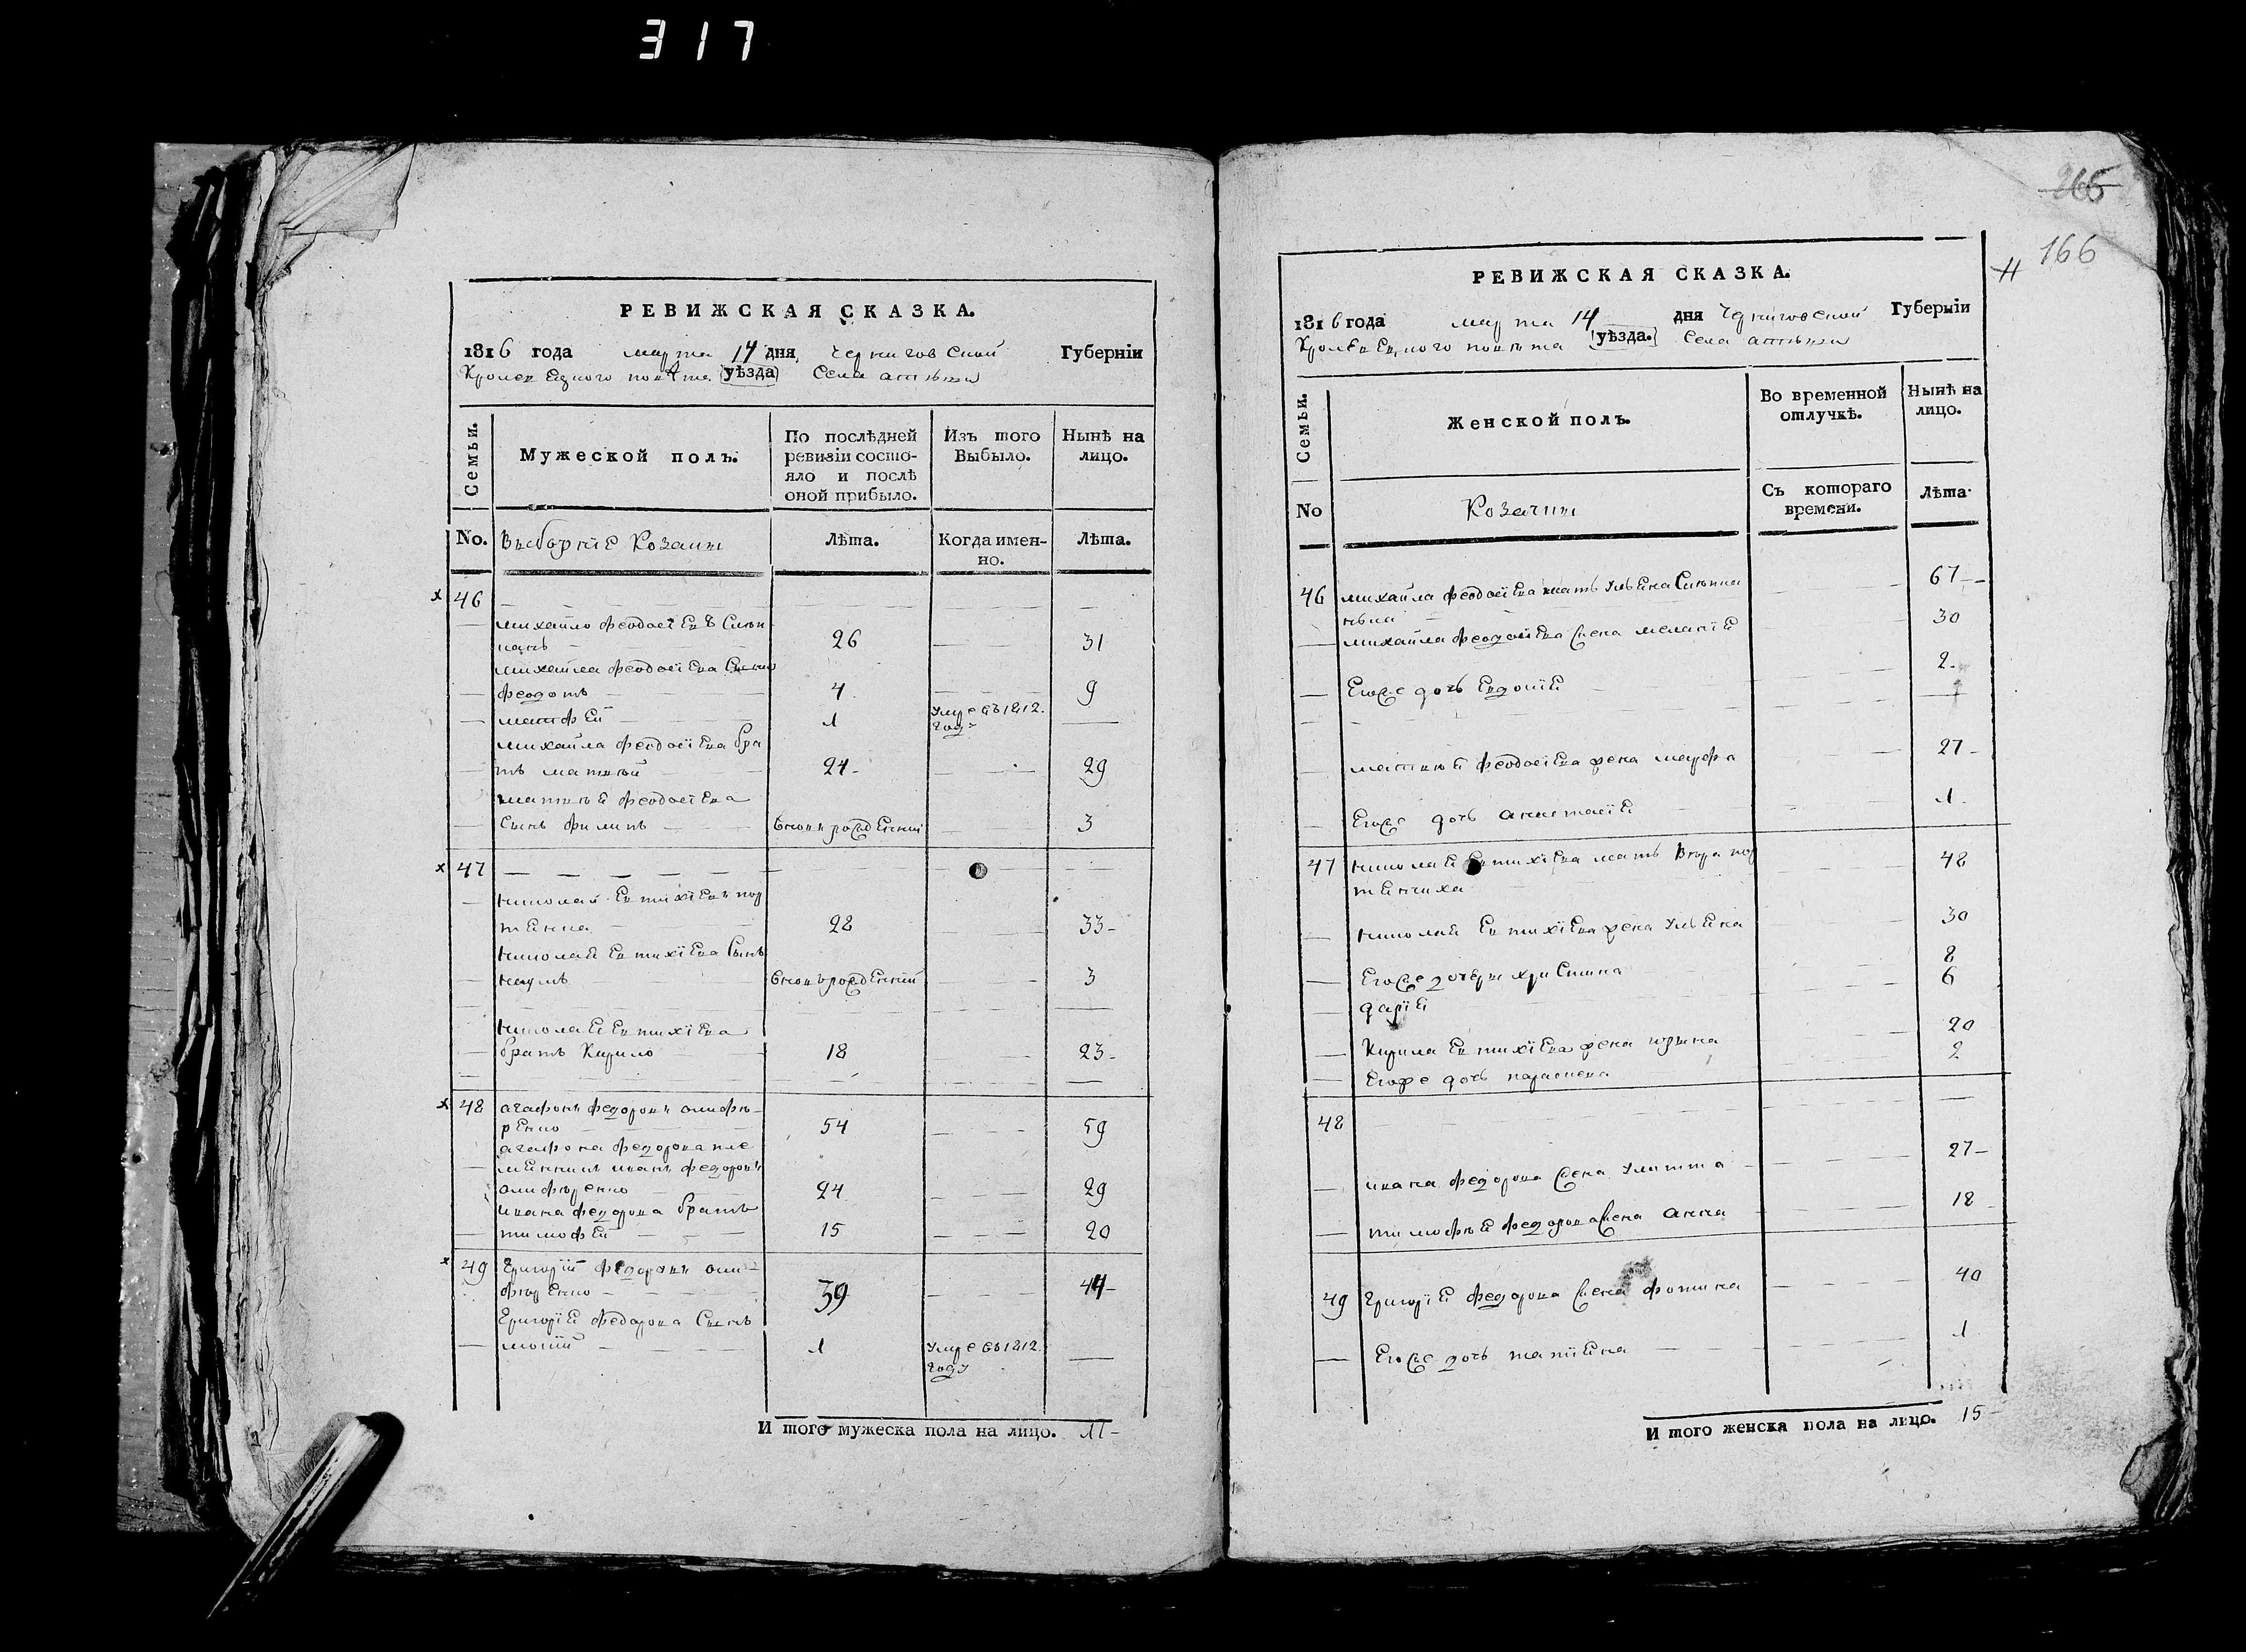 317
265
166
РЕВИЖСКАЯ СКАЗКА.
1816 года марта 14 дня Черниговской Губерніи
Кролевецкого повѣта уѣзда Села
Семьи.
Мужеской полъ.
По послѣдней ревизіи состояло и послѣ оной прибыло.
Изъ того Выбыло.
Нынѣ на лицо.
No. Выборніе Козаки
Лѣта.
Когда именно.
Лѣта.
46
михайло феодосіевъ
26 31
михайла феодосіева Сынъ
феодотъ 4 9
матфей 1 Умре въ 1812.
году
михайла феодосіева бра
тъ матвѣй 24 29
матвѣя феодосіева
Сынъ филипъ вновърожденній 3
47
николай Евтихіевъ пор
тянка 28 33
николая Евтихіева Сынъ
наумъ вновърожденній 3
николая Евтихіева
братъ Кирило 18 23
48 агафонъ федоровъ олифѣ-
ренко 54 59
агафона федорова пле
мянникъ иванъ федоровъ
олифѣренко 24 29
ивана федорова братъ
тимофей 15 20
49 Григорій федоровъ оли-
фѣренко 39 44
Григорія федорова Сынъ
мосій 1 Умре въ 1812.
году
И того мужеска пола на лицо. 11
РЕВИЖСКАЯ СКАЗКА.
1816 года марта 14 дня Черниговской Губерніи
Кролевецкого повѣта уѣзда. Села
Семьи.
Женской полъ.
Во временной отлучкѣ.
Нынѣ на лицо.
No
Козачки
Съ котораго времени.
Лѣта
46 михайла феодосіева мать Ульяна 67
михайла феодосіева жена меланія 30
Егоже дочь Евдокія 2
матвѣя феодосіева жена марфа 27
Егоже дочь анастасія 1
47 николая Евтихіева мать Вѣра пор
тянчиха 48
николая Евтихіева жена Ульяна 30
Егоже дочери христина 8
дарія 6
Кирила Евтихіева жена ирина 20
Егоже дочь параскева 2
48
ивана федорова жена Улитта 27
тимофѣя федорова жена анна 18
49 Григорія федорова жена фотина 40
Егоже дочь татіяна 1
И того женска пола на лицо. 15